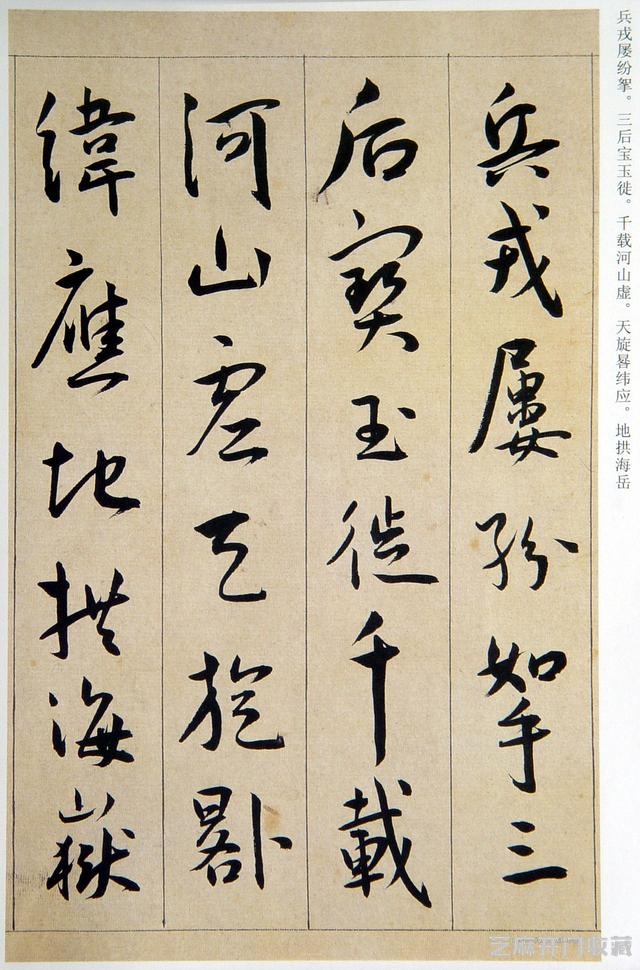 兵戎屡纷挐。三后宝玉徙。千载河山虚。天旋晷纬应。地拱海岳
兵戎屢紛挐三
后寳玉徙千載
河山虛天旋晷
緯應地拱海嶽
芝麻开门收藏